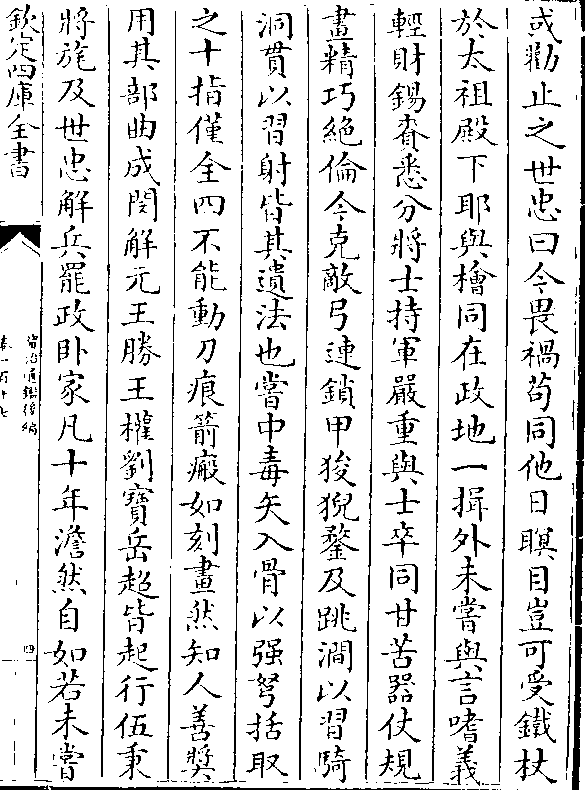 或勸止之世忠曰今畏禍苟同他日瞑目豈可受鐵杖
於太祖殿下耶與檜同在政地一揖外未嘗與言嗜義
輕財錫賚悉分將士持軍嚴重與士卒同甘苦器仗規
畫精巧絶倫今克敵弓連鎖甲狻猊鍪及跳澗以習騎
洞貫以習射皆其遺法也嘗中毒矢入骨以强弩括取
之十指僅全四不能動刀痕箭瘢如刻畫然知人善奬
用其部曲成閔解元王勝王權劉寶岳超皆起行伍秉
將旄及世忠解兵罷政卧家凡十年澹然自如若未嘗
欽定四庫全書
資治通鑑後編
卷一百十七
四